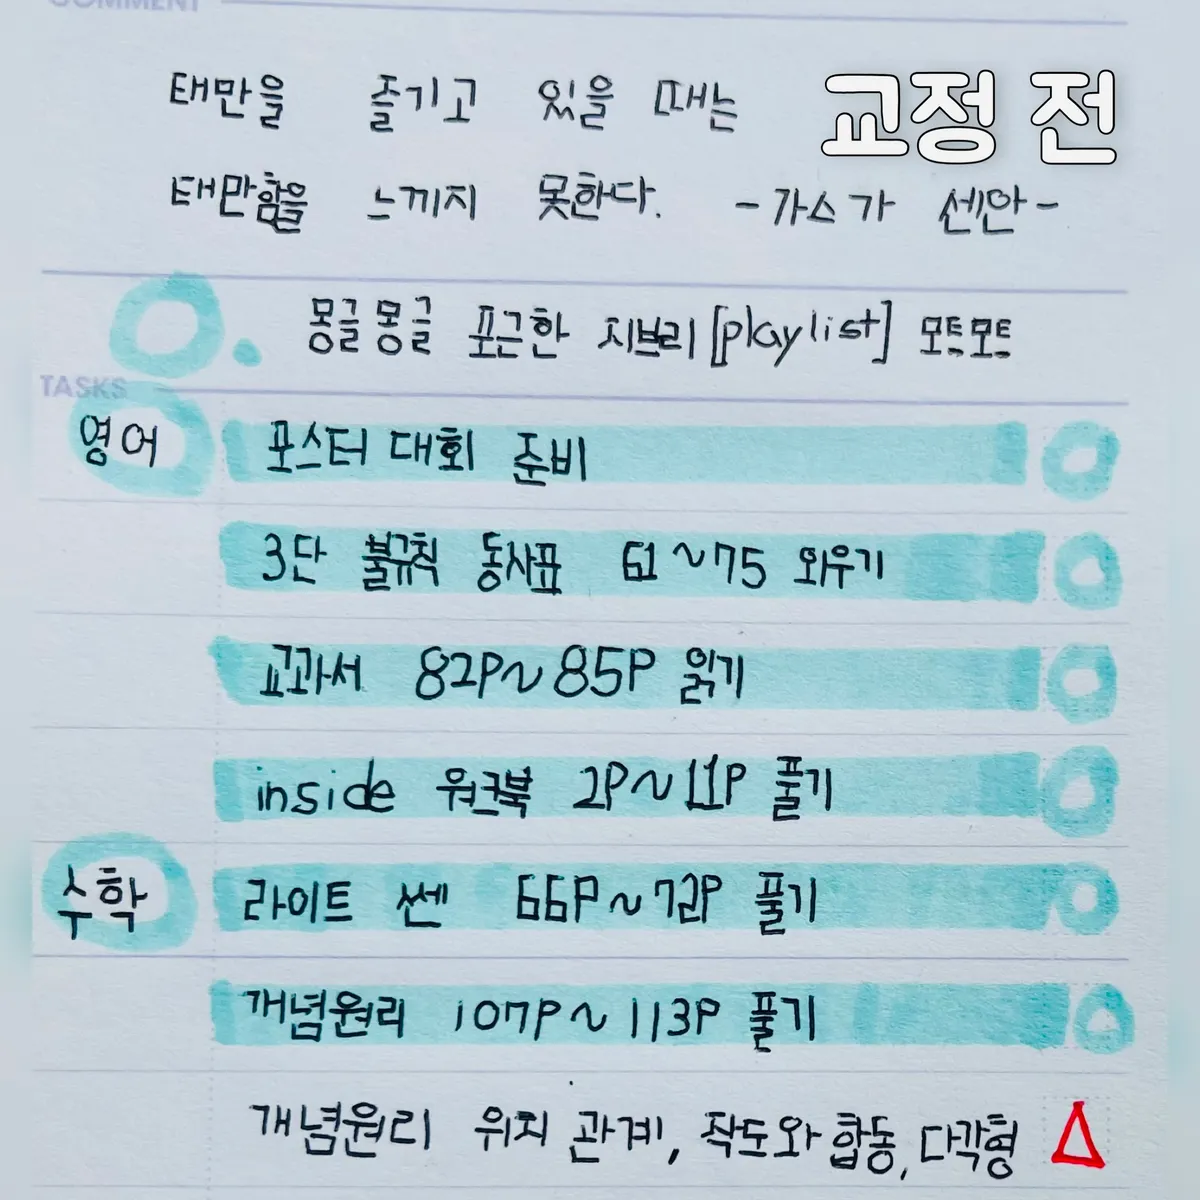 COMMENT
태만을 즐기고 있을 때는 교정 전
태만함을 느끼지 못한다. -가스가 센안-
몽글몽글 포근한 지브리 [playlist] 모트모트
TASKS
영어 포스터 대회 준비
3단 불규칙 동사표 61~75 외우기
교과서 82P~85P 읽기
inside 워크북 2P~11P 풀기
수학 라이트 쎈 66P~72P 풀기
개념원리 107P~113P 풀기
개념원리 위치 관계, 작도와 합동, 다각형